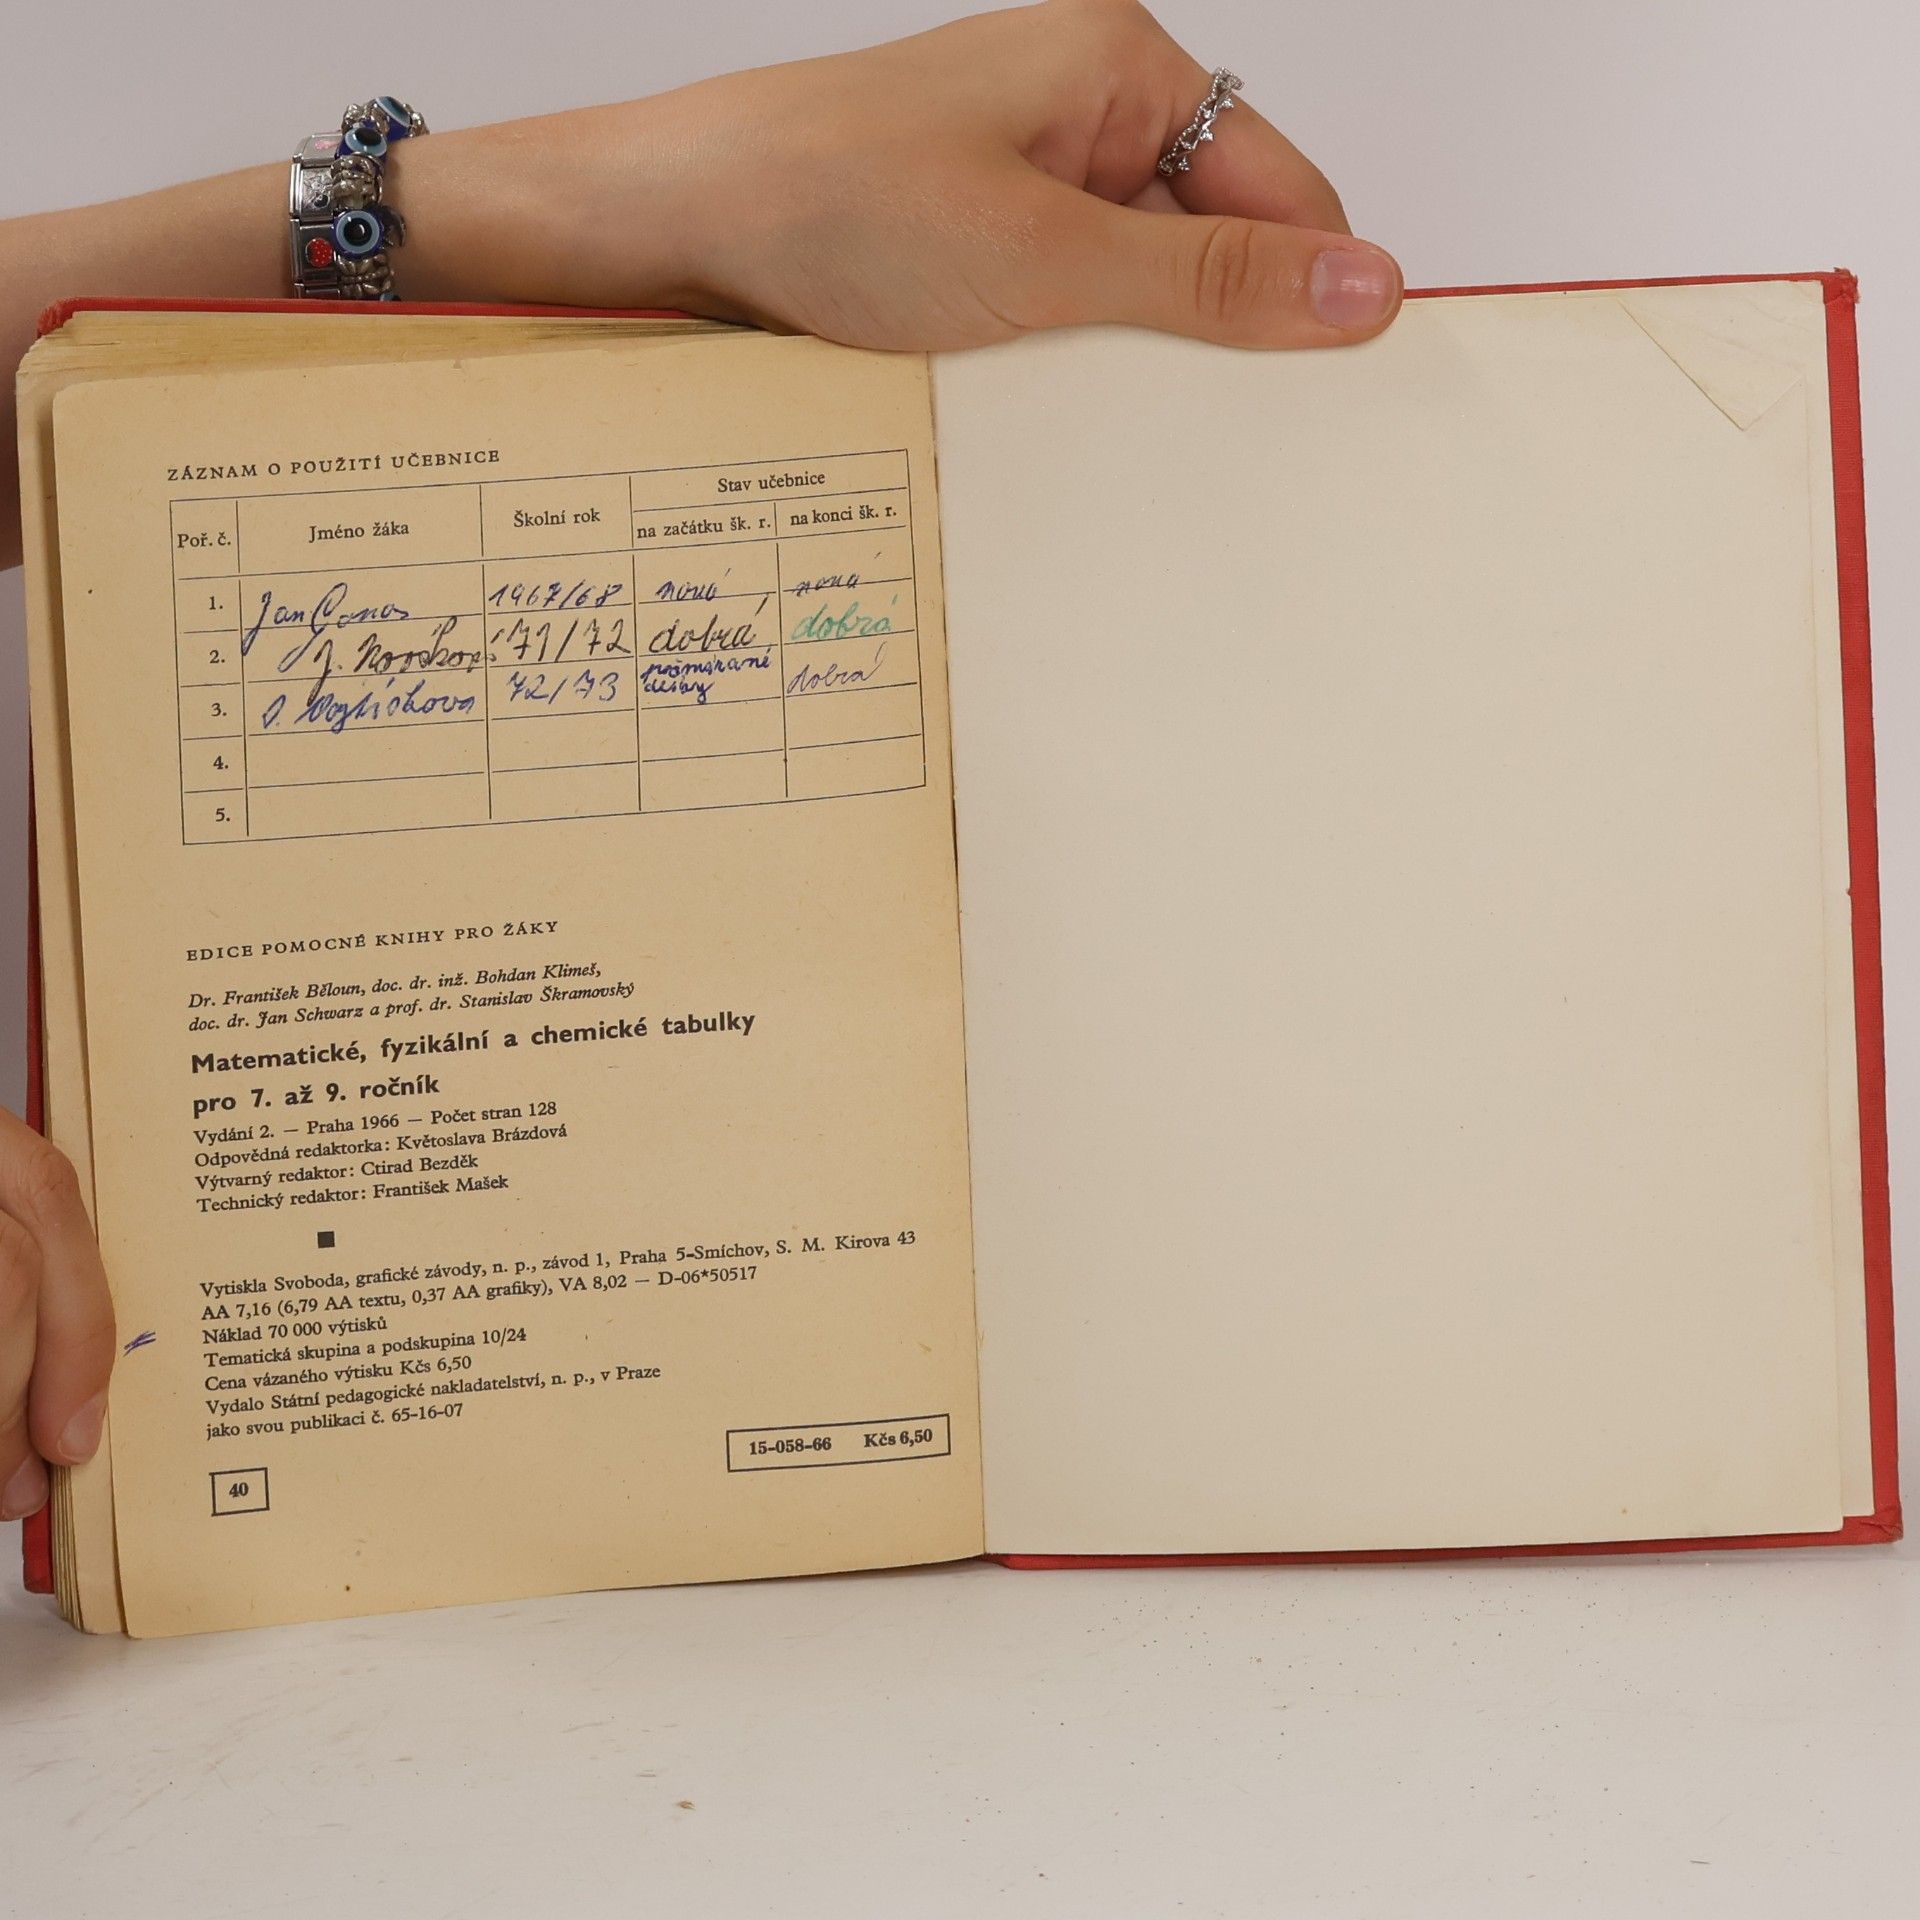 ZÁZNAM O POUŽITÍ UČEBNICE
Poř. č. Jméno žáka Školní rok Stav učebnice
na začátku šk. r. na konci šk. r.
1. Jan 1967/68 nová nová
2. J. 71/72 dobrá dobrá
3. 72/73 desky dobrá
4.
5.
EDICE POMOCNÉ KNIHY PRO ŽÁKY
Dr. František Běloun, doc. dr. inž. Bohdan Klimeš,
doc. dr. Jan Schwarz a prof. dr. Stanislav Škramovský
Matematické, fyzikální a chemické tabulky
pro 7. až 9. ročník
Vydání 2. — Praha 1966 — Počet stran 128
Odpovědná redaktorka: Květoslava Brázdová
Výtvarný redaktor: Ctirad Bezděk
Technický redaktor: František Mašek
Vytiskla Svoboda, grafické závody, n. p., závod 1, Praha 5-Smíchov, S. M. Kirova 43
AA 7,16 (6,79 AA textu, 0,37 AA grafiky), VA 8,02 — D-06*50517
Náklad 70 000 výtisků
Tematická skupina a podskupina 10/24
Cena vázaného výtisku Kčs 6,50
Vydalo Státní pedagogické nakladatelství, n. p., v Praze
jako svou publikaci č. 65-16-07
15-058-66 Kčs 6,50
40